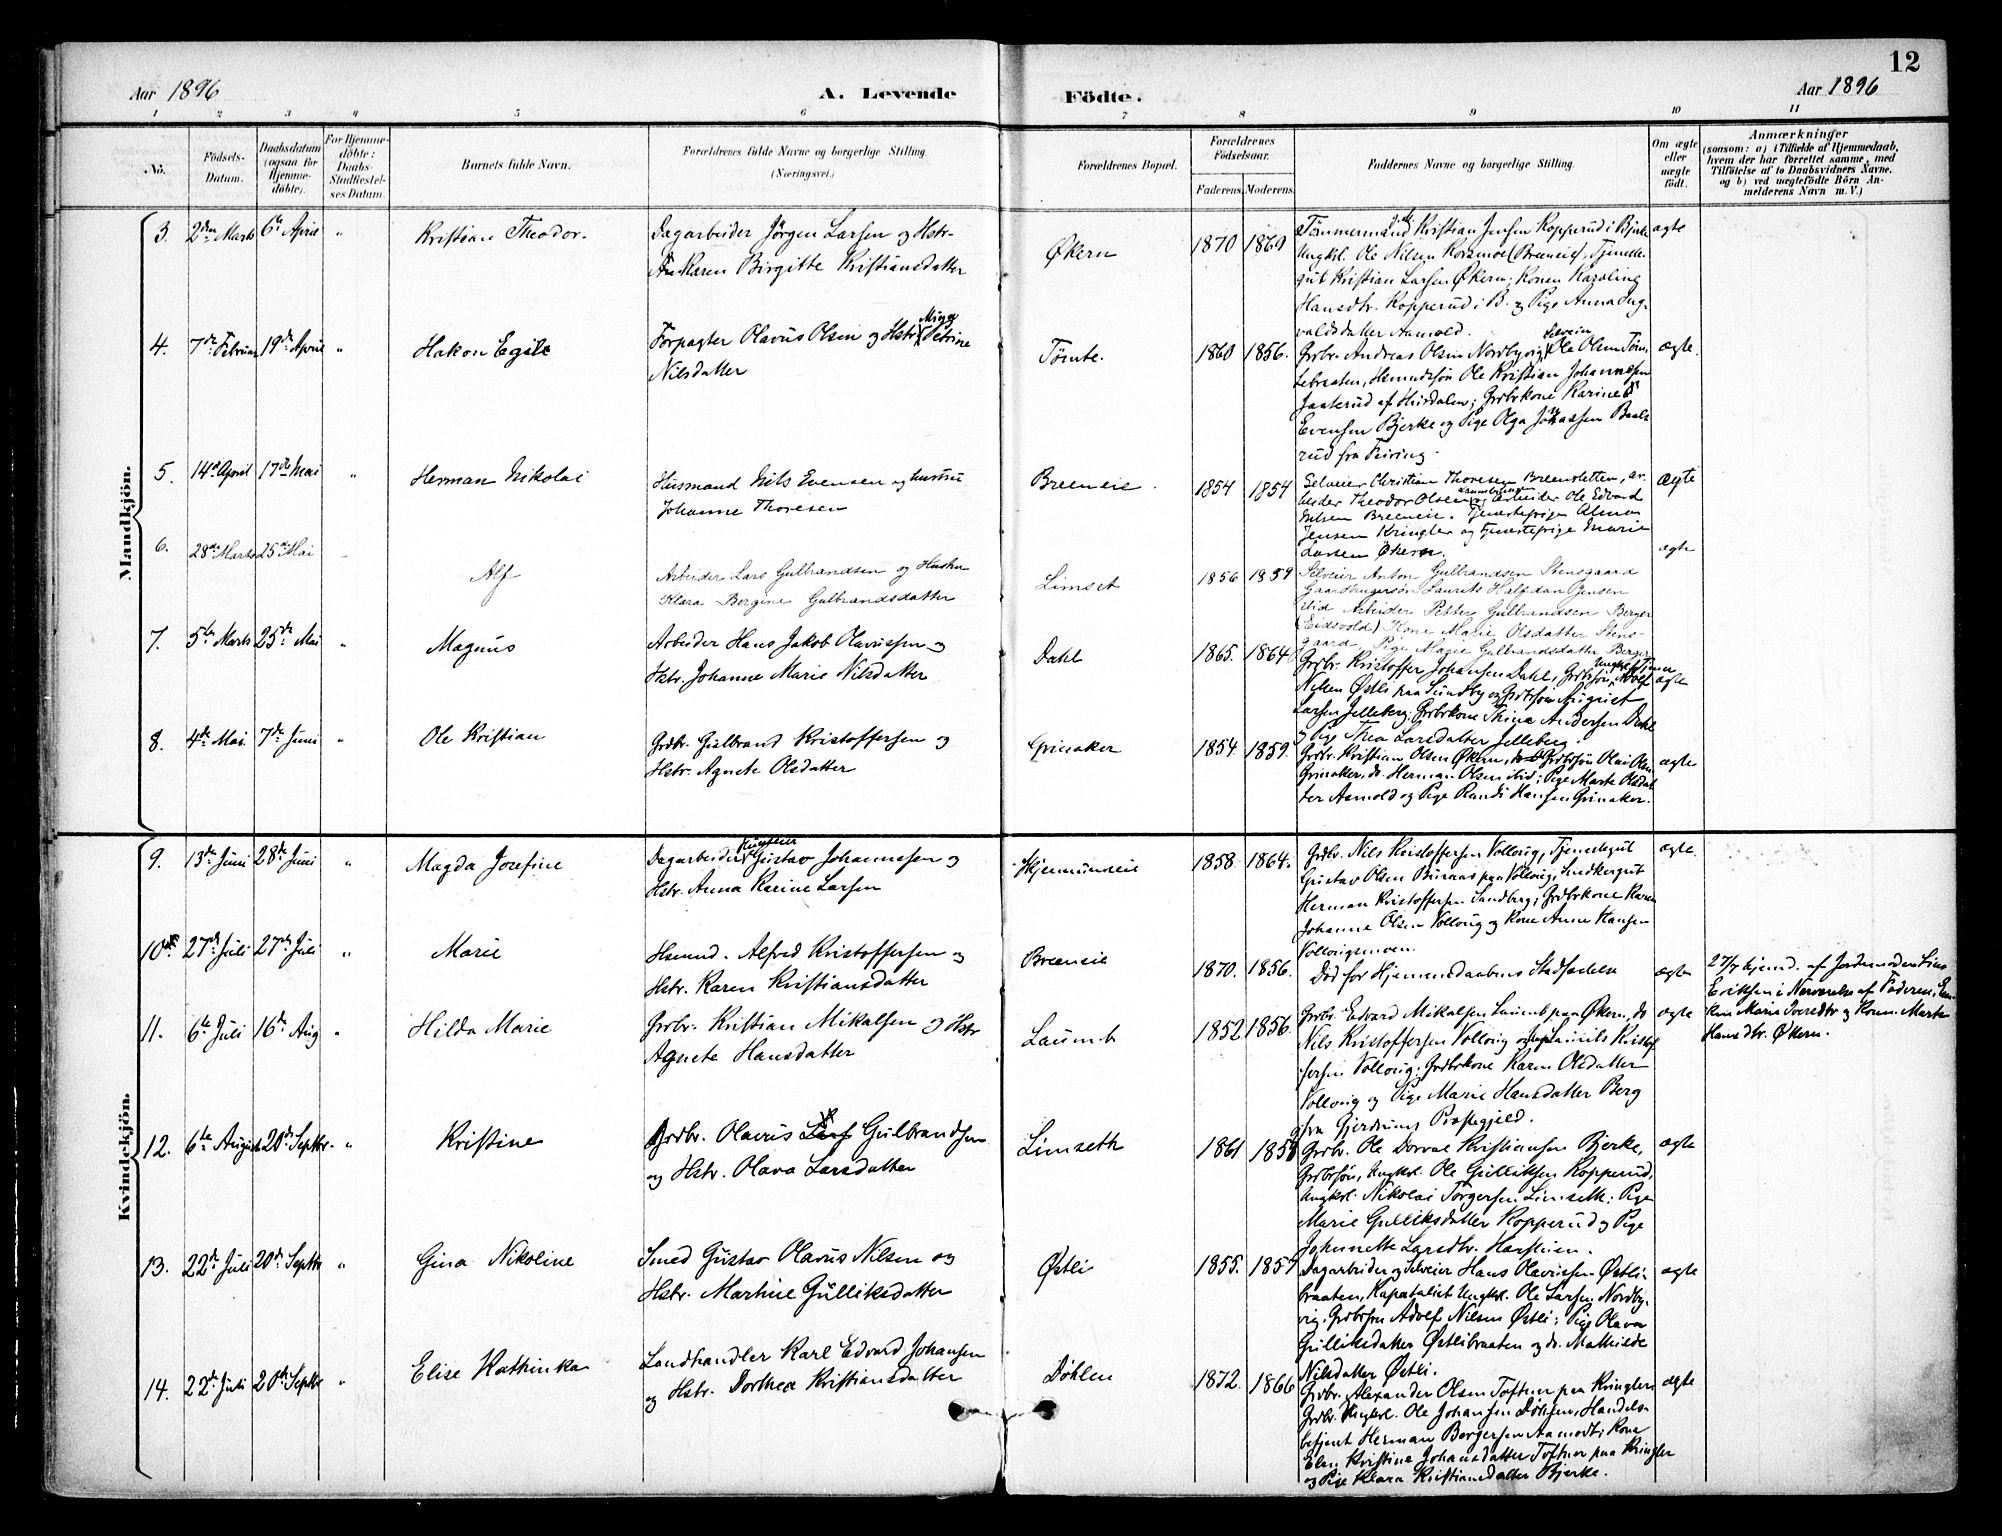 12
Aar 1896
A. Levende Födte.
Aar 1896
1 2 3 4 5 6 7 8 9 10 11
No.
Födsels-Datum.
Daabsdatum (ogsaa for Hjemmedöbte).
For Hjemmedöbte: Daabs-Stadfæstelses Datum.
Barnets fulde Navn.
Forældrenes fulde Navne og borgerlige Stilling.
(Næringsvei.)
Forældrenes Bopæl.
Forældrenes Födselsaar.
Faderens. Moderens.
Faddernes Navne og borgerlige Stilling.
Om ægte eller uægte födt.
Anmærkninger
(saasom: a) i Tilfælde af Hjemmedaab,
hvem der har forrettet samme, med
Tilföielse af to Daabsvidners Navne,
og b) ved uægtefödte Börn Anmelderens Navn m. V.)
Mandkjön.
3. 2den Marts 6te April " Kristian Theodor. Dagarbeider Jörgen Larsen og Hstr.
Karen Birgitte Kristiansdatter
Økern 1870 1869
Tömmermand Kristian Jensen Kopperud i Bjerke
Ungkl. Ole Nilsen Korsmoe (Breeneie), Tjeneste-
gut Kristian Larsen Økern; Konen Karoline
Hansdtr. Kopperud i B. og Pige Anna Ing-
valdsdatter Aamold.
ægte
4. 7de Februar 19de April " Hakon Egill Forpagter Olavus Olsen og Hstr. Petrine
Nilsdatter
Tömte. 1860 1856.
Grdbr. Andreas Olsen Nordbyvig, Selveier Ole Olsen Töm-
tebraaten, Ole Kristian Johannessen
Jaaterud af Hurdalen; Grdbrkone Karine
Evensen Bjerke og Pige Olga Johansen Baals-
rud fra Feiring.
ægte.
5. 14de April 17de Mai " Herman Nikolai Husmand Nils Evensen og hustru
Johanne Thoresen
Breeneie. 1854 1854
Selveier Christian Thoresen Breensletten, ar-
beider Theodor Olsen og arbeider Ole Edvard
Nilsen Breeneie. Tjenestepige Alma
Jensen Kringler og tjenestepige Marie
Larsen Økern.
ægte
6. 28de Marts 25de Mai Alf Arbeider Lars Gulbrandsen og Hustru
Klara Bergine Gulbrandsdatter
Limset 1856 1859
Selveier Anton Gulbrandsen Stensgaard
Gaardbrugersön Laurits Halfdan Jensen
ibid Arbeider Petter Gulbrandsen Berger
(Eidsvold) Kone Marie Olsdatter Stens-
gaard Pige Marie Gulbrandsdatter Berger
ægte
7. 5te Marts 25de Mai " Magnus Arbeider Hans Jakob Olavessen og
Hstr. Johanne Marie Nilsdatter
Dahl 1865. 1864
Grdbr. Kristoffer Johansen Dahl, Grdbrsön, Ungkl. Adolf
Nilsen Østli paa Sundby og Grdbrsön August
Larsen Jelleberg; Grdbrkone Thina Andersen Dahl
og Pige Thea Larsdatter Jelleberg.
ægte
8. 4de Mai. 7de Juni " Ole Kristian Grdbr. Gulbrand Kristoffersen og
Hstr. Agnete Olsdatter
Grinaker 1854. 1859.
Grdbr. Kristian Olsen Økern, Grdbrsön Olai Olsen
Grinaker, do. Herman Olsen ibid; Pige Marte Olsdat-
ter Aamold og Pige Randi Hansen Grinaker.
ægte
Kvindekjön.
9. 13de Juni 28de Juni " Magda Josefine Dagarbeider Gustav Johannessen og
Hstr. Anna Karine Larsen
Skjennumseie 1858 1864.
Grdbr. Nils Kristoffersen Vollovig, Tjenestegut
Gustav Olsen Buraas paa Vollovig, Snedkergut
Herman Kristoffersen Sandberg; Grdbrkone Karen
Johanne Olsen Vollovig og Kone Anne Hansen
Vollovigsmoen.
ægte.
10. 27de Juli 27de Juli " Marie Hsmnd. Alfred Kristoffersen og
Hstr. Karen Kristiansdatter
Breeneie 1870. 1856.
Död for Hjemmedaabens Stadfæstelse
ægte
27/7 hjemd. af Jordemoder Lina
Eriksen i Nærværelse af Faderen, En-
ken Maria Iversdtr og Konen Marte
Hansdtr. Økern.
11. 6te Juli 16de Aug " Hilda Marie Grdbr. Kristian Mikalsen og Hstr
Agnete Hansdatter
Laumb 1852 1856.
Grdbr. Edvard Mikalsen Laumb paa Økern, do
Nils Kristoffersen Vollovig og Laurits Kristof-
fersen Vollovig; Grdbrkone Karen Olsdatter
Vollovig og Pige Marie Hansdatter Berg
fra Gjerdrums Præstegjeld.
ægte
12. 6te August 20de Septbr. " Kristine Grdbr. Olavus Gulbrandsen
og Hstr. Olava Larsdatter
Limseth 1861 1858
Grdbr. Ole Dorval Kristiansen Bjerke,
Grdbrsön, Ungkl. Ole Gulliksen Kopperud,
Ungkl. Nikolai Torgersen Limseth; Pige
Marie Gulliksdatter Kopperud og Pige
Johnette Larsdtr. Harstuen.
ægte
13. 22de Juli 20de Septbr " Gina Nikoline Smed Gustav Olavus Nilsen og
Hstr. Martine Gulliksdatter
Østli 1855. 1857
Dagarbeider og Selveier Hans Olavessen Østli-
braaten, Kapitalist Ungkl. Ole Larsen Nordby-
vig, Grdbrsön Adolf Nilsen Østli; Pige Olava
Gulliksdatter Østlibraaten og do. Mathilde
Nilsdatter Østli.
ægte
14. 22de Juli 20de Septbr " Elise Kathinka Landhandler Karl Edvard Johansen
og Hstr. Dorthea Kristiansdatter
Döhlen 1872. 1866
Grdbr. Alexander Olsen Toftner paa Kringler
Grdbr. Ungkl. Ole Johansen Döhlen, Handels-
betjent Herman Bergersen Aamodt; Kone
Elen Kristine Johansdatter Toftner paa Kringler
og Pige Klara Kristiansdatter Bjerke.
ægte